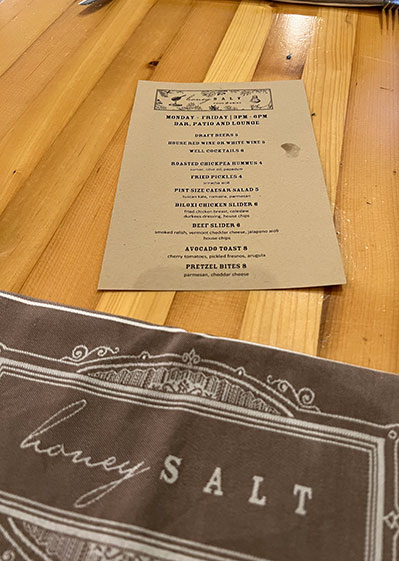 honey SALT
MONDAY - FRIDAY | 3PM - 6PM
BAR, PATIO AND LOUNGE
DRAFT BEERS 5
HOUSE RED WINE OR WHITE WINE 5
WELL COCKTAILS 6
ROASTED CHICKPEA HUMMUS 4
FRIED PICKLES 4
sriracha aioli
PINT SIZE CAESAR SALAD 5
tuscan kale, romaine, parmesan
BILOXI CHICKEN SLIDER 6
fried chicken breast, coleslaw
durkees dressing, house chips
BEEF SLIDER 6
smoked relish, vermont cheddar cheese, jalapeno aioli
house chips
AVOCADO TOAST 8
cherry tomatoes, pickled fresnos, arugula
PRETZEL BITES 8
parmesan, cheddar cheese
honey SALT